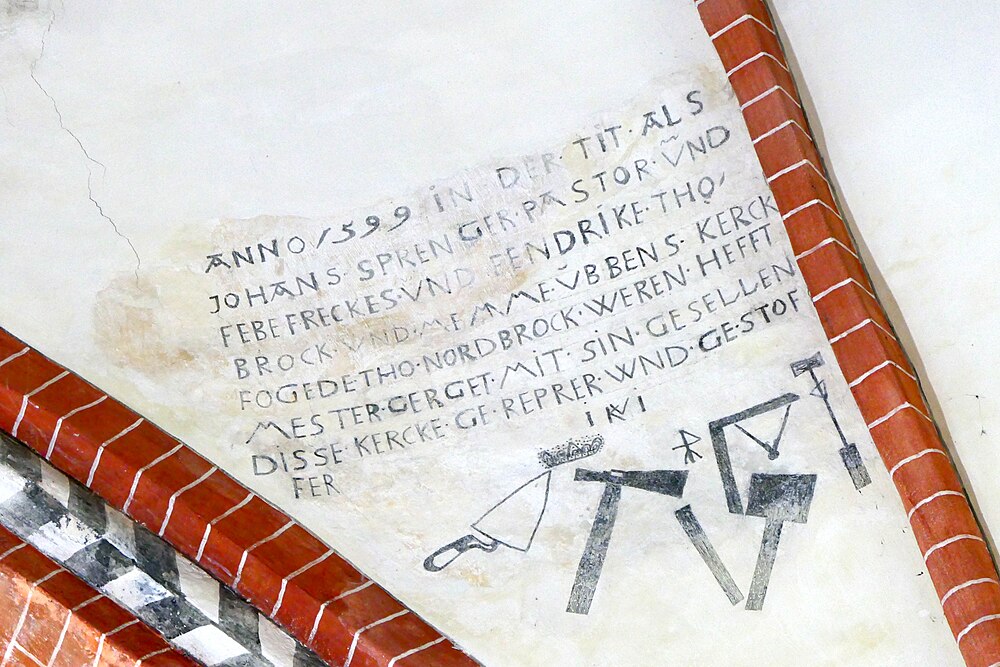 ANNO 1599 IN DER TIT · ALS
JOHANS · SPRENGER · PASTOR · ŨND
FEBE FRECKES · VND EENDRIKE · THO
BROCK · VND · MEMME · ŬBBENS · KERCK
FOGEDE THO · NORDBROCK · WEREN · HEFFT
MESTER · GERGET · MIT · SIN · GESELLEN
DISSE · KERCKE · GE · REPRER · WND · GE · STOF
FER